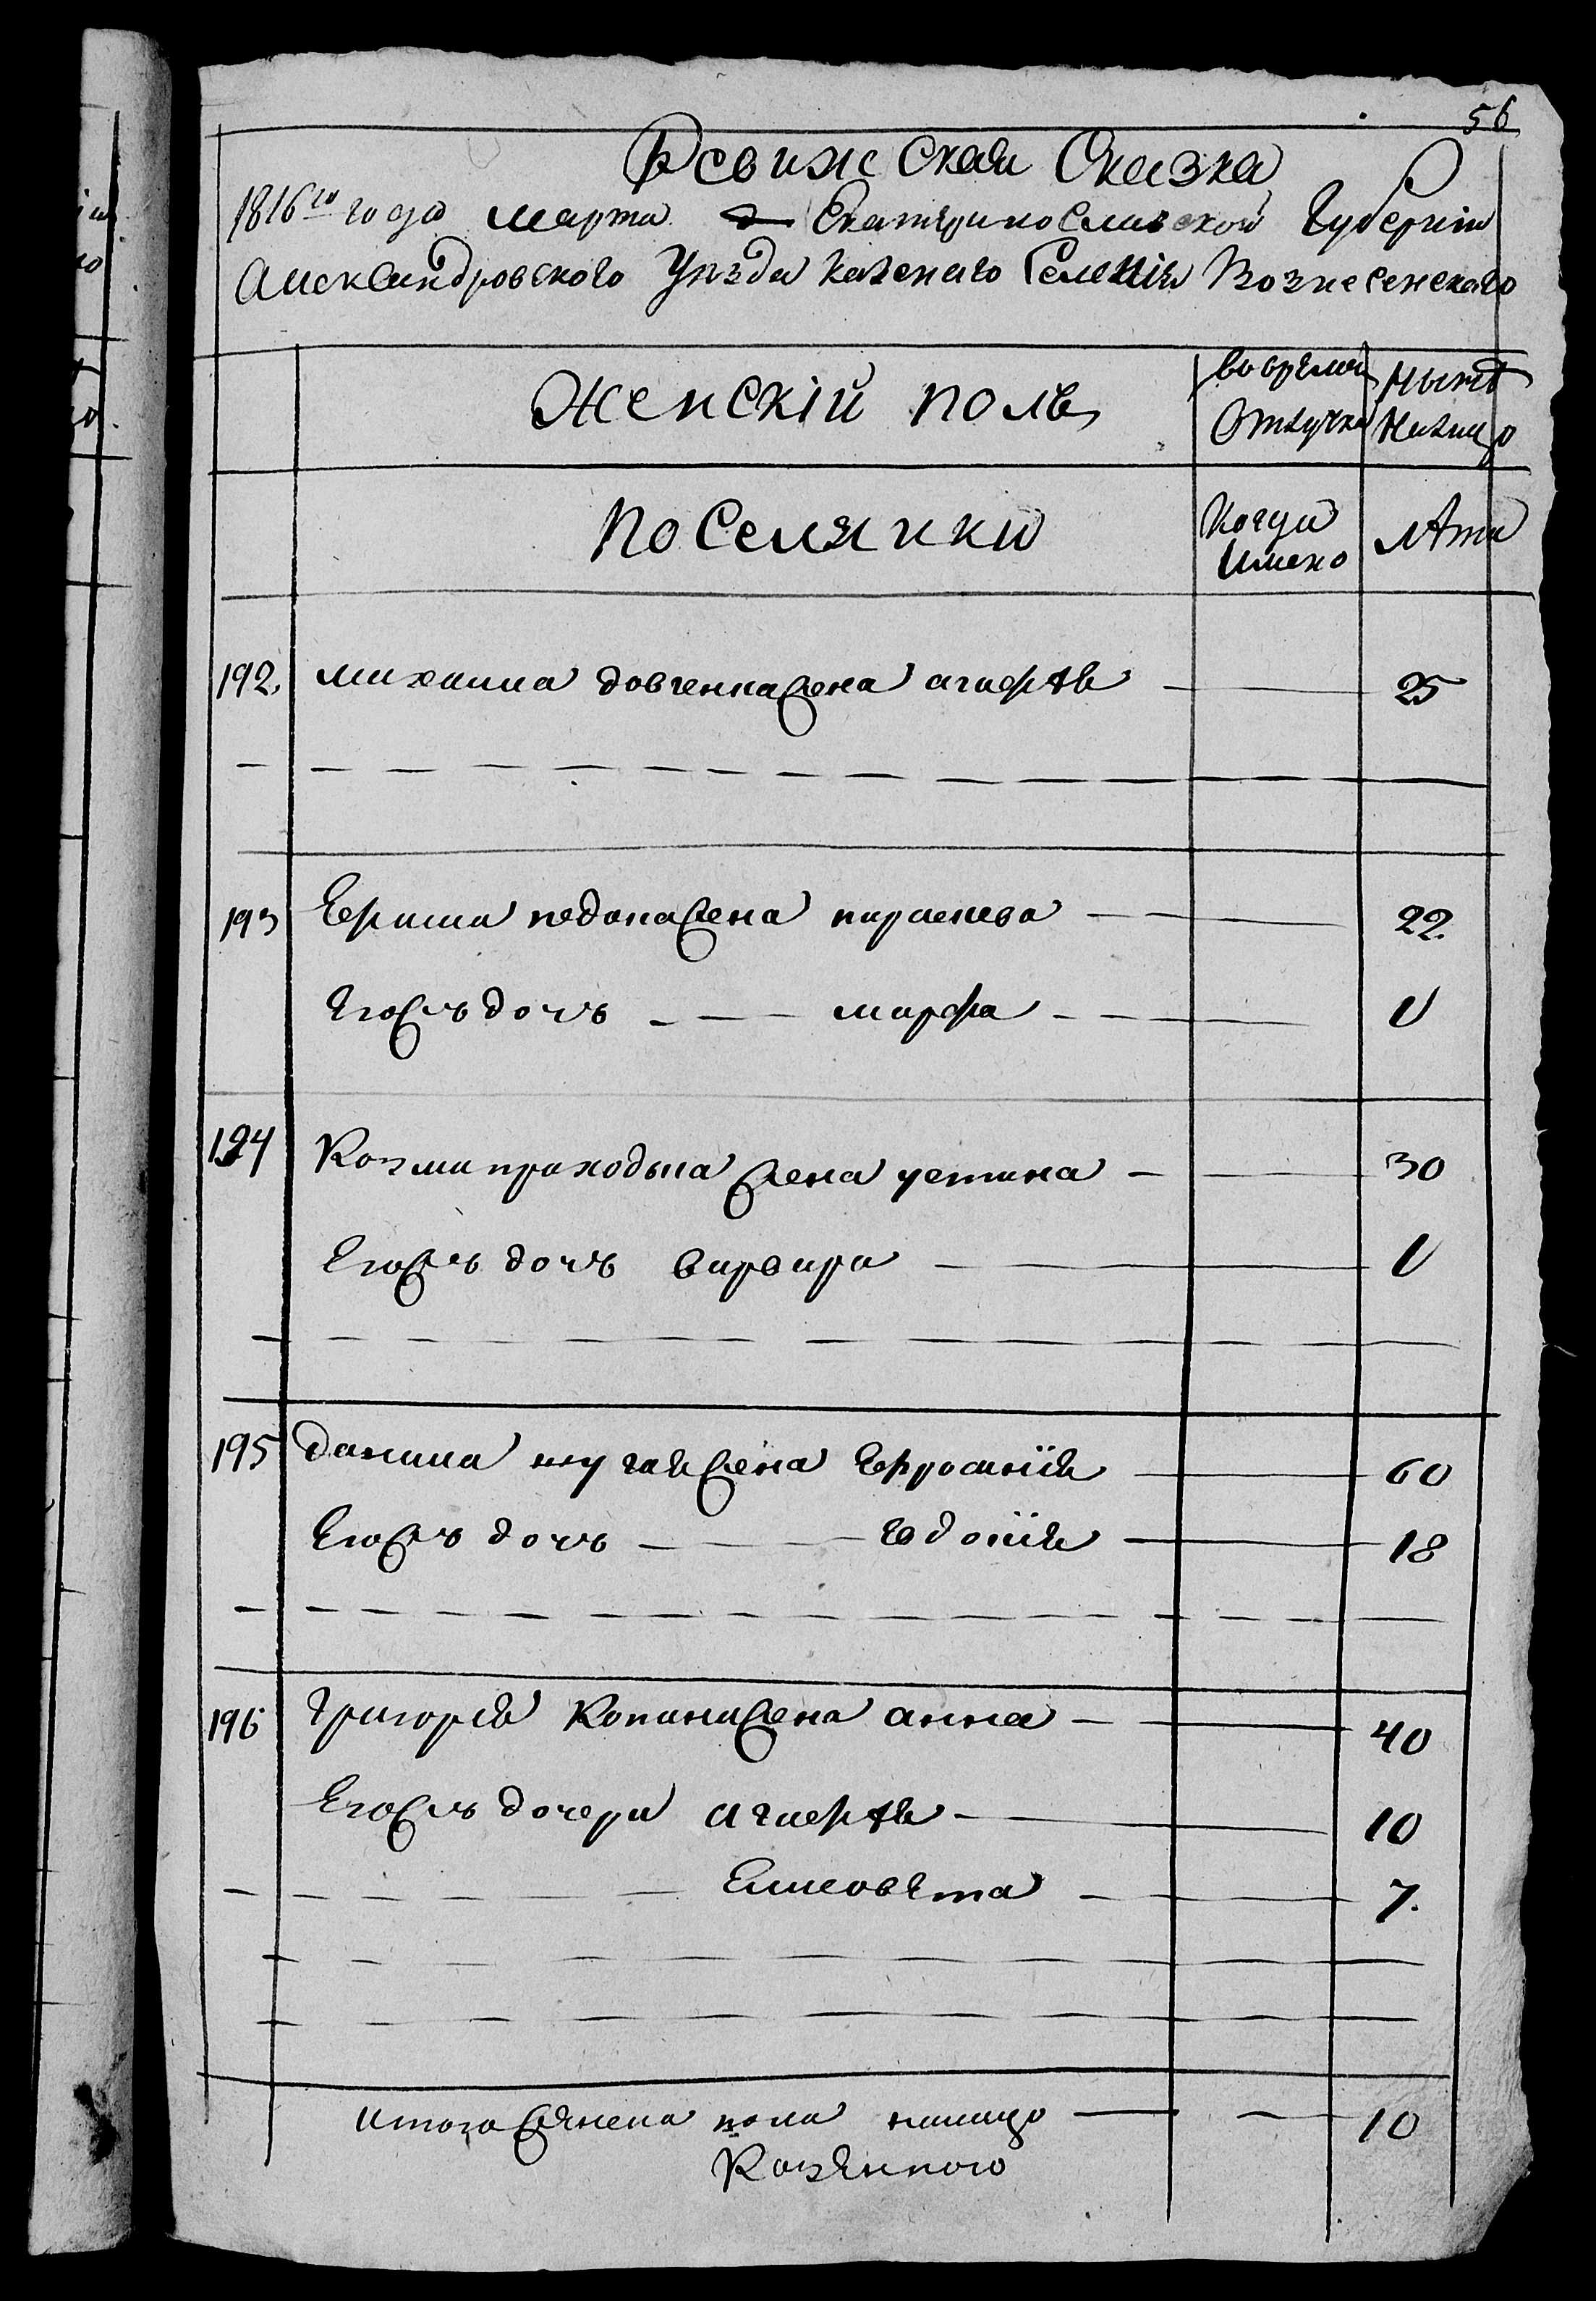 56
Ревижская Сказка
1816го года марта Екатеринославской Губерніи
Александровского Уѣзда казенаго Селенія Вознесенскаго
Женскій полъ
вовремя Отлучке
Нынѣ Налицо
поселянки
Когда Имено
Лѣта
192. михаила довгенка жена агафія 25
193 жена 22.
Егожъ дочь марфа
194 Козми приходька жена устина 30
Егожъ дочь варвара
195 данила жена Ефросинія 60
Егожъ дочь 18
196 Григорія жена анна 40
Егожъ дочери агафія 10
Елисовета 7.
итого женска пола налицо 10
Козенного